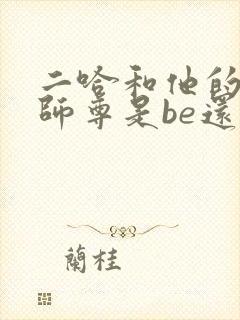 二哈和他的
師尊是be還
蘭桂